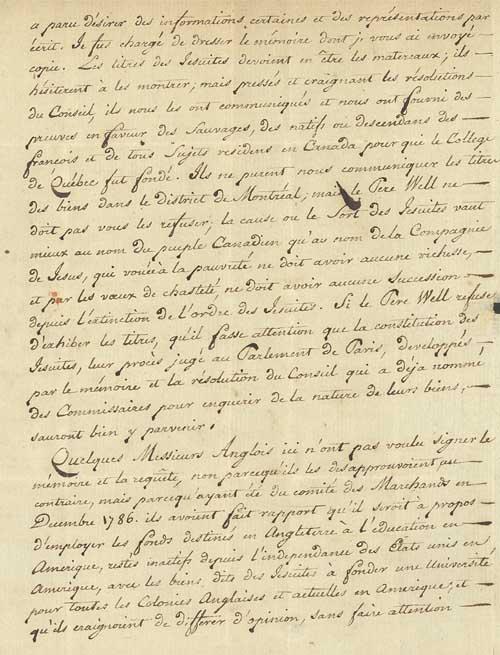 a paru désirer des informations certaines et des représentations par
écrit. Je fus chargé de dresser le mémoire dont je vous ai envoyé
copie. Les titres des Jesuites devoient en être les materaux; ils
hésiterent à les montrer; mais pressés et craignant les résolutions
du Conseil, ils nous les ont communiqués et nous ont fourni des
preuves en faveur des Sauvages, des natifs ou descendans des
françois et de tous Sujets residens en Canada pour que le College
de Québec fut fondé. Ils ne purent nous communiquer les titres
des biens dans le District de Montréal; mais le Pere Well ne
doit pas vous les refuser, la cause ou le Sort des Jesuites vaut
mieux au nom du peuple Canadien qu'au nom de la Compagnie
de Jesus, qui vouée à la pauvreté ne doit avoir aucune richesse,
et par les vœux de chasteté, ne doit avoir aucune succession
depuis l'extinction de l'ordre des Jesuites. Si le Pere Well refuse
d'exhiber les titres, qu'il fasse attention que la constitution des
Jesuites, leur procès jugé au Parlement de Paris, developpés
par le mémoire et la résolution du Conseil qui a déja nommé
des Commissaires pour enquerir de la nature de leurs biens,
sauront bien y parvenir.
Quelques Messieurs Anglois ici n'ont pas voulu signer le
mémoire et la requête, non parcequ'ils les disapprouvoient au
contraire, mais parcequ'ayant été du comité des Marchands en
Decembre 1786. ils avoient fait rapport qu'il seroit à propos
d'employer les fonds destinés en Angleterre à l'éducation en
Amerique, restes inactifs depuis l'independance des Etats unis en
Amérique, avec les biens dits des Jesuites à fonder une Université
pour toutes les Colonies Anglaises et actuelles en Amerique, et
qu'ils craignoient de différer d'opinion, sans faire attention